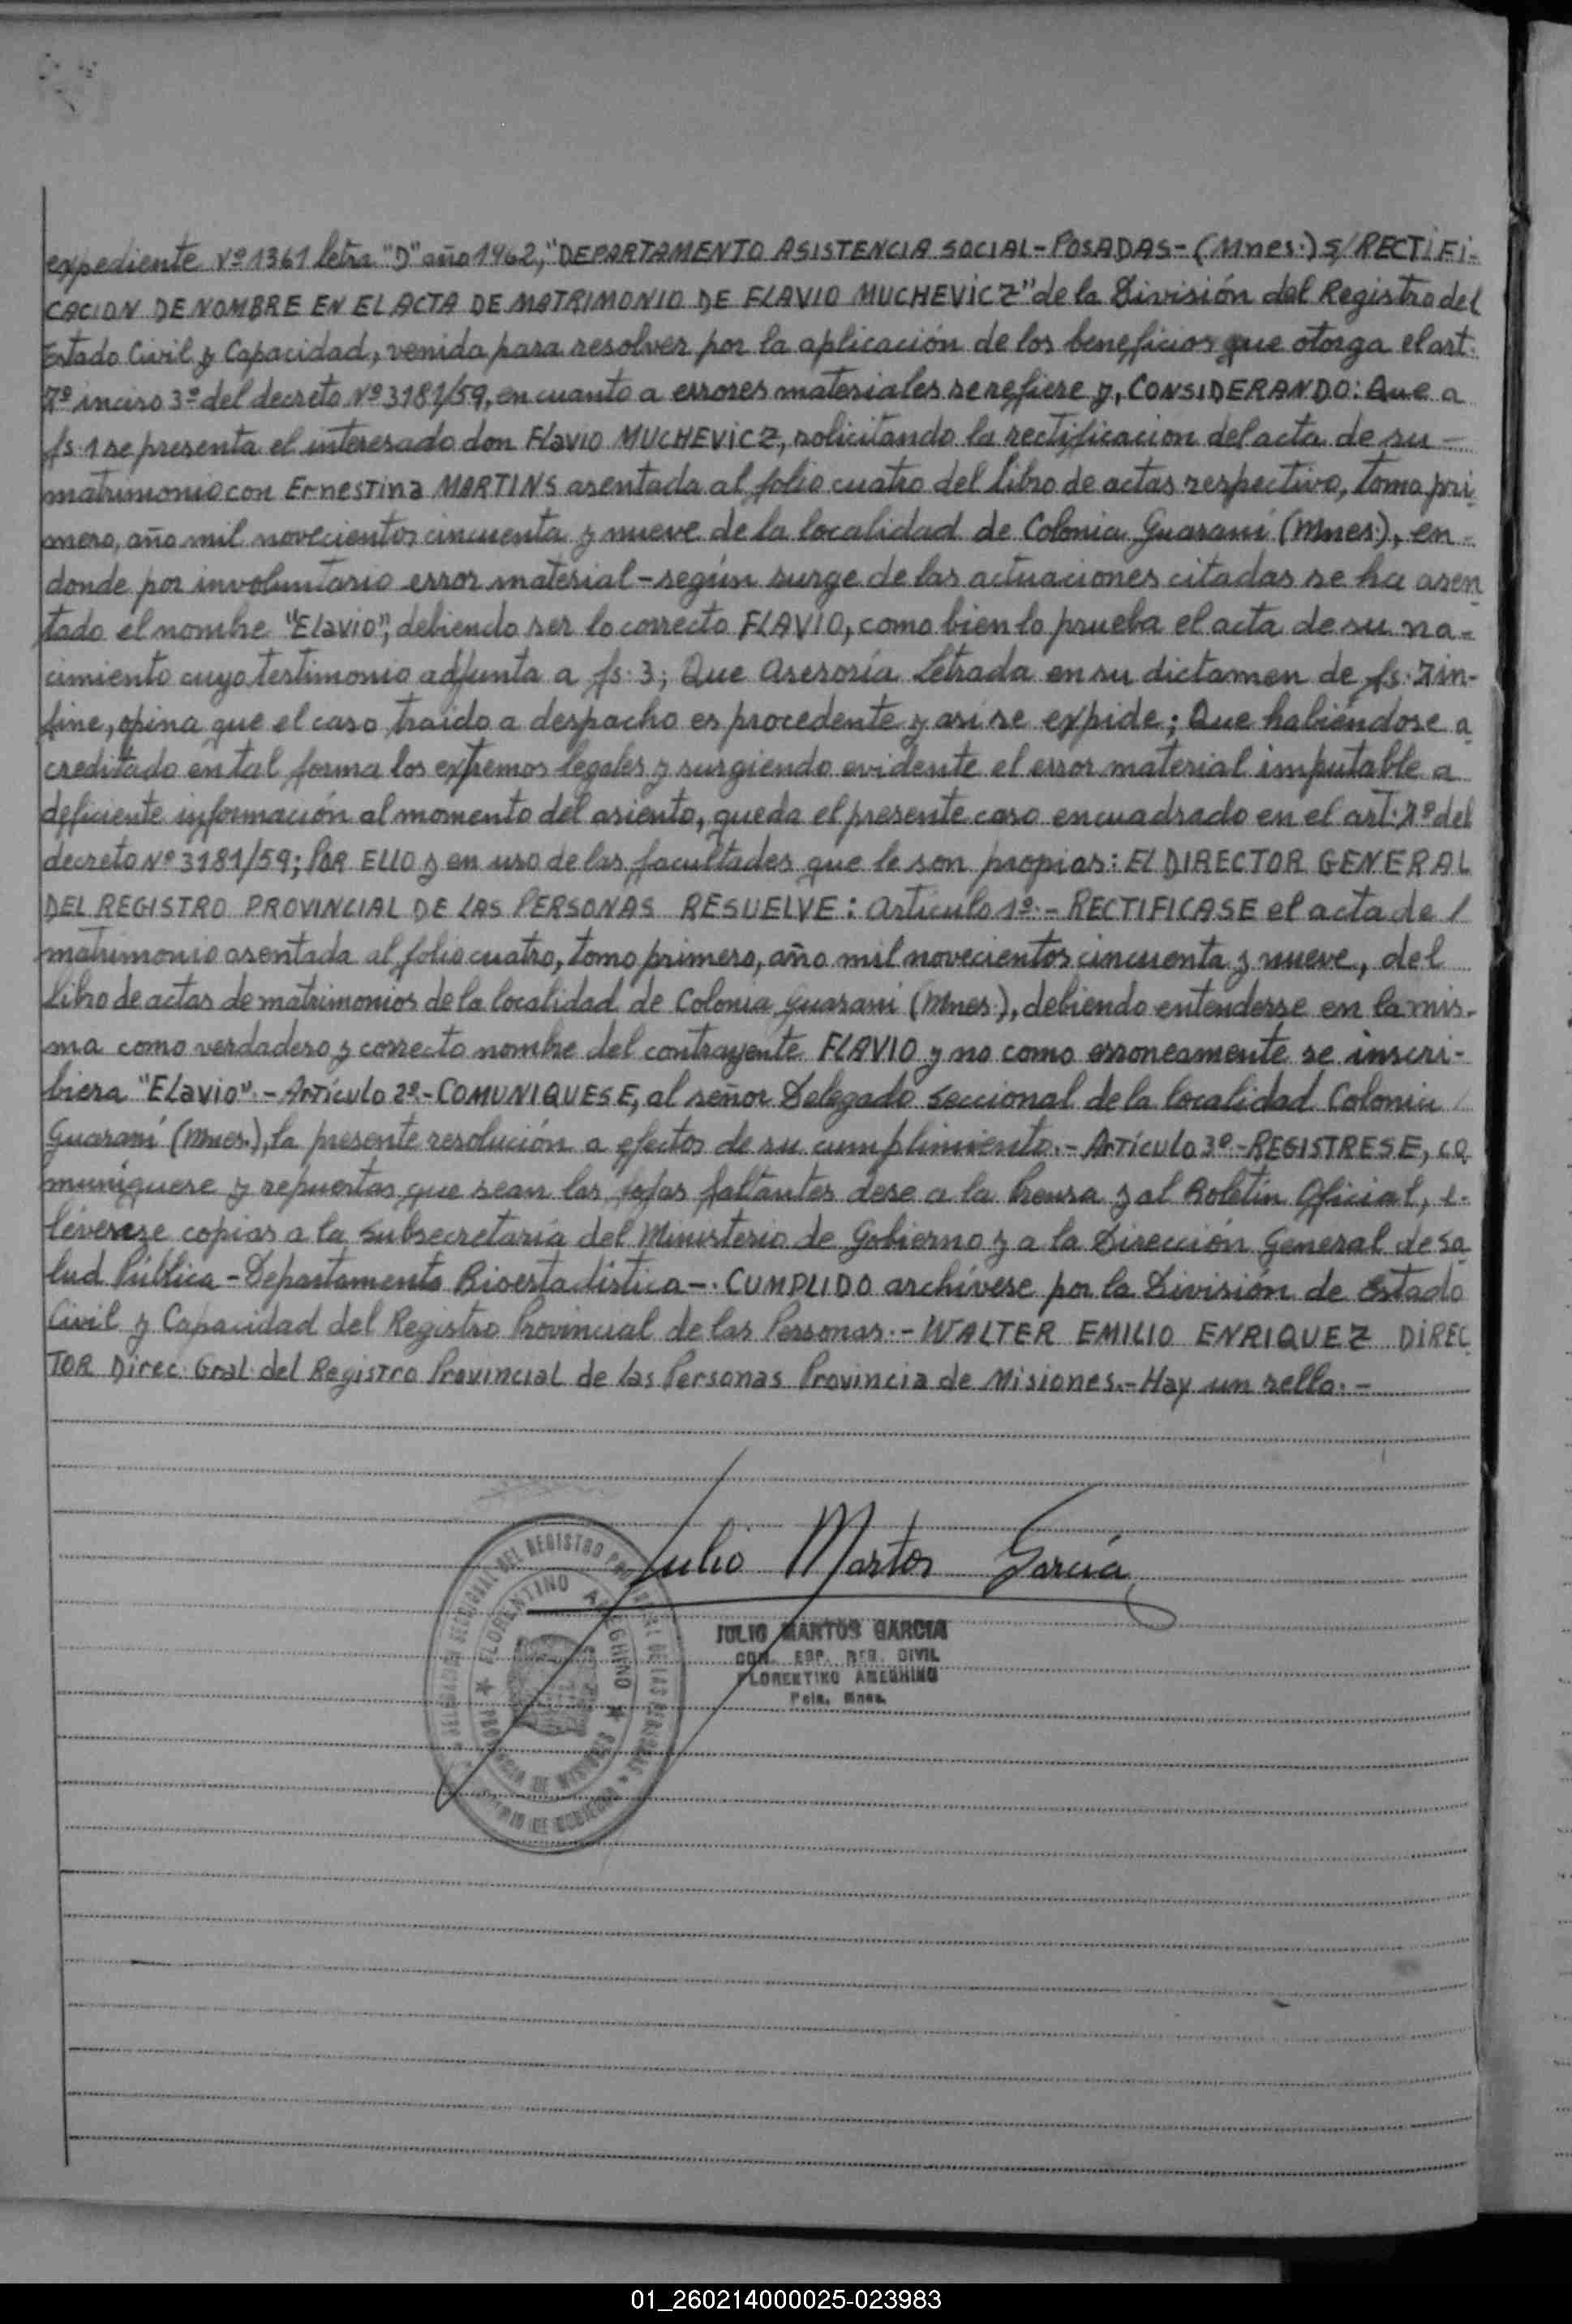 expediente Nº 1361 letra "D" año 1962, "DEPARTAMENTO ASISTENCIA SOCIAL - POSADAS - (Mnes.) S/ RECTIFI-
CACION DE NOMBRE EN EL ACTA DE MATRIMONIO DE FLAVIO MUCHEVICZ" de la División del Registro del
Estado Civil y Capacidad, venida para resolver por la aplicación de los beneficios que otorga el art.
7º inciso 3º del decreto Nº 3181/59, en cuanto a errores materiales se refiere y, CONSIDERANDO: Que a
fs. 1 se presenta el interesado don Flavio MUCHEVICZ, solicitando la rectificacion del acta de su -
matrimonio con Ernestina MARTINS asentada al folio cuatro del libro de actas respectivo, tomo pri
mero, año mil novecientos cincuenta y nueve de la localidad de Colonia Guaraní (Mnes.), en -
donde por involuntario error material - según surge de las actuaciones citadas se ha asen
tado el nombre "Elavio", debiendo ser lo correcto FLAVIO, como bien lo prueba el acta de su na-
cimiento cuyo testimonio adjunta a fs. 3; Que Asesoría Letrada en su dictamen de fs. 7 in-
fine, opina que el caso traído a despacho es procedente y así se expide; Que habiéndose a
creditado en tal forma los extremos legales y surgiendo evidente el error material imputable a
deficiente información al momento del asiento, queda el presente caso encuadrado en el art. 7º del
decreto Nº 3181/59; POR ELLO y en uso de las facultades que le son propias: EL DIRECTOR GENERAL
DEL REGISTRO PROVINCIAL DE LAS PERSONAS RESUELVE: Artículo 1º.- RECTIFICASE el acta de /
matrimonio asentada al folio cuatro, tomo primero, año mil novecientos cincuenta y nueve, del
libro de actas de matrimonios de la localidad de Colonia Guaraní (Mnes.), debiendo entenderse en la mis-
ma como verdadero y correcto nombre del contrayente FLAVIO y no como erroneamente se inscri-
biera "Elavio".- Artículo 2º.- COMUNIQUESE, al señor Delegado Seccional de la localidad Colonia /
Guaraní (Mnes.), la presente resolución a efectos de su cumplimiento.- Artículo 3º.- REGISTRESE, co
muníquese y repuestas que sean las fojas faltantes dese a la Prensa y al Boletín Oficial, e-
lévense copias a la Subsecretaría del Ministerio de Gobierno y a la Dirección General de Sa
lud Pública - Departamento Bioestadística -. CUMPLIDO archívese por la División de Estado
Civil y Capacidad del Registro Provincial de las Personas.- WALTER EMILIO ENRIQUEZ DIREC
TOR Direc. Gral. del Registro Provincial de las Personas Provincia de Misiones.- Hay un sello.-
Julio Martos García
JULIO MARTOS GARCIA
REG. CIVIL
FLORENTINO AMEGHINO
Pcia. Mnes.
FLORENTINO AMEGHINO
PROVINCIA DE MISIONES
01_260214000025-023983